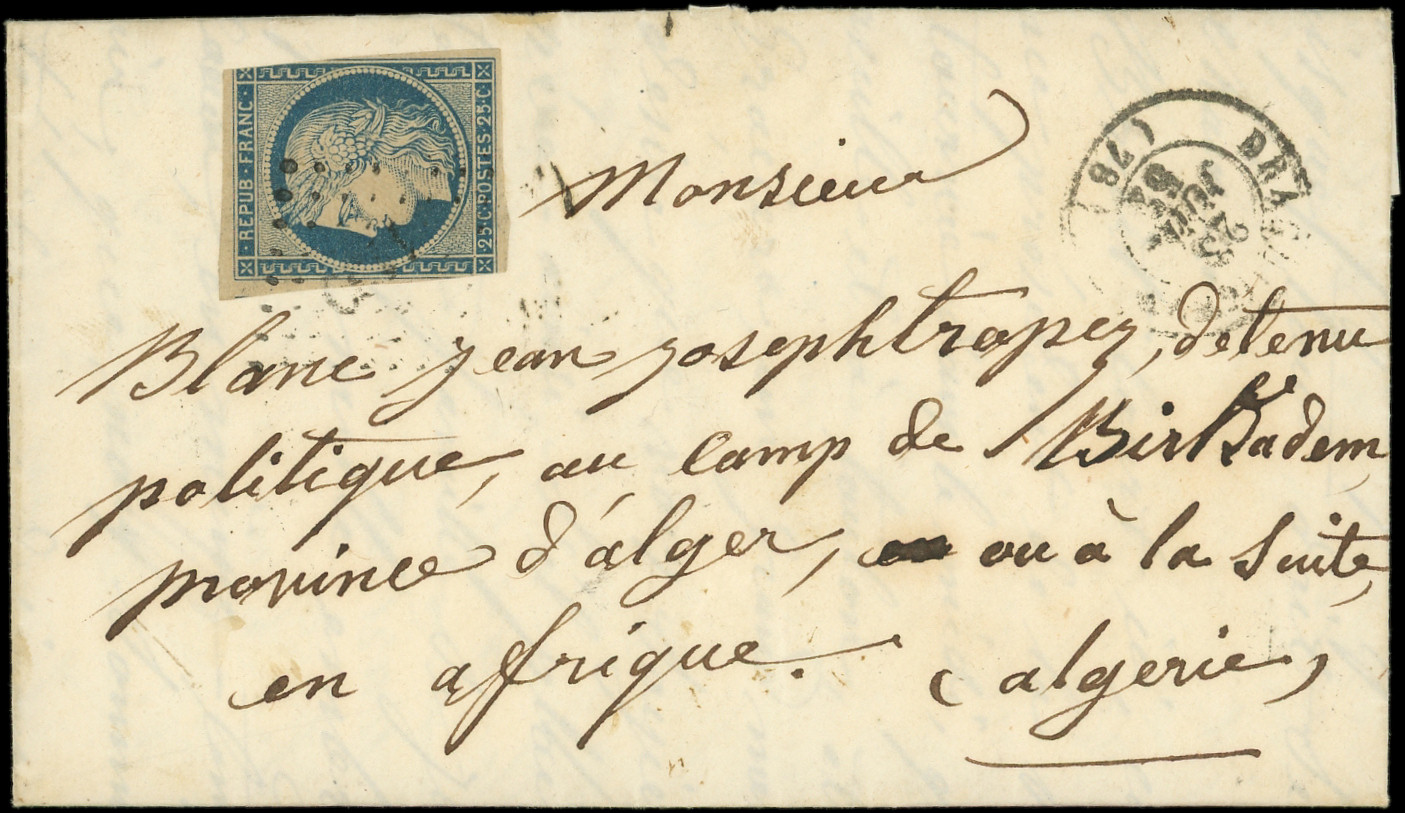 REPUB·FRANC·
25·C·POSTES·25·C·
Monsieur
Blanc jean joseph tropez, detenu
politique, au camp de BirKadem,
province d'alger, ou à la suite,
en afrique. (algerie)